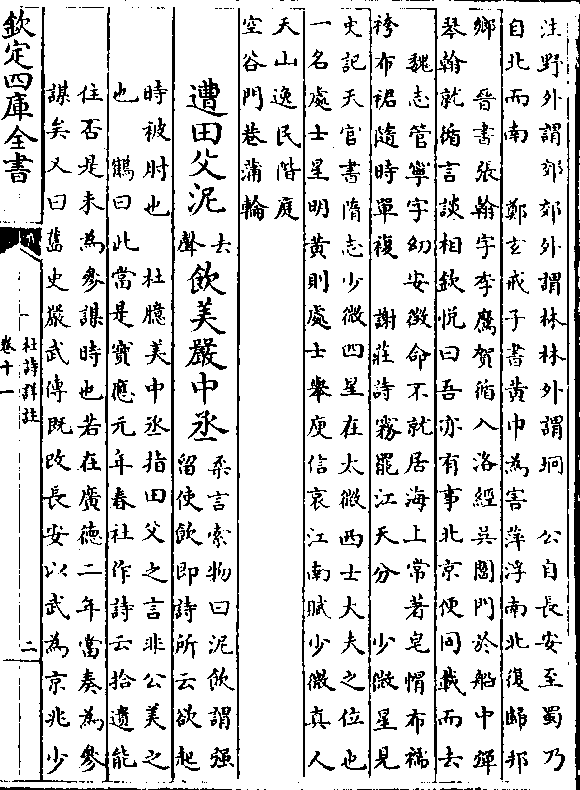 注野外謂郊郊外謂林林外謂坰　公自長安至蜀乃
自北而南　鄭玄戒子書黃巾為害萍浮南北復歸邦
鄉　晉書張翰字季鷹賀循入洛經吳閶門於船中彈
琴翰就循言談相欽悅曰吾亦有事北京便同載而去
魏志管寧字幼安徵命不就居海上常著皂帽布襦
袴布裙隨時單複　謝莊詩霧罷江天分　少微星見
史記天官書隋志少微四星在太微西士大夫之位也
一名處士星明黃則處士舉庾信哀江南賦少微真人
天山逸民階庭
空谷門巷蒲輪
遭田父泥去聲飲美嚴中丞柔言索物曰泥飲謂强
留使飲即詩所云欲起
時被肘也　杜臆美中丞指田父之言非公美之
也　鶴曰此當是寶應元年春社作詩云拾遺能
住否是未為參謀時也若在廣德二年當奏為參
謀矣又曰舊史嚴武傳既收長安以武為京兆少
欽定四庫全書
杜詩詳註
卷十一
二